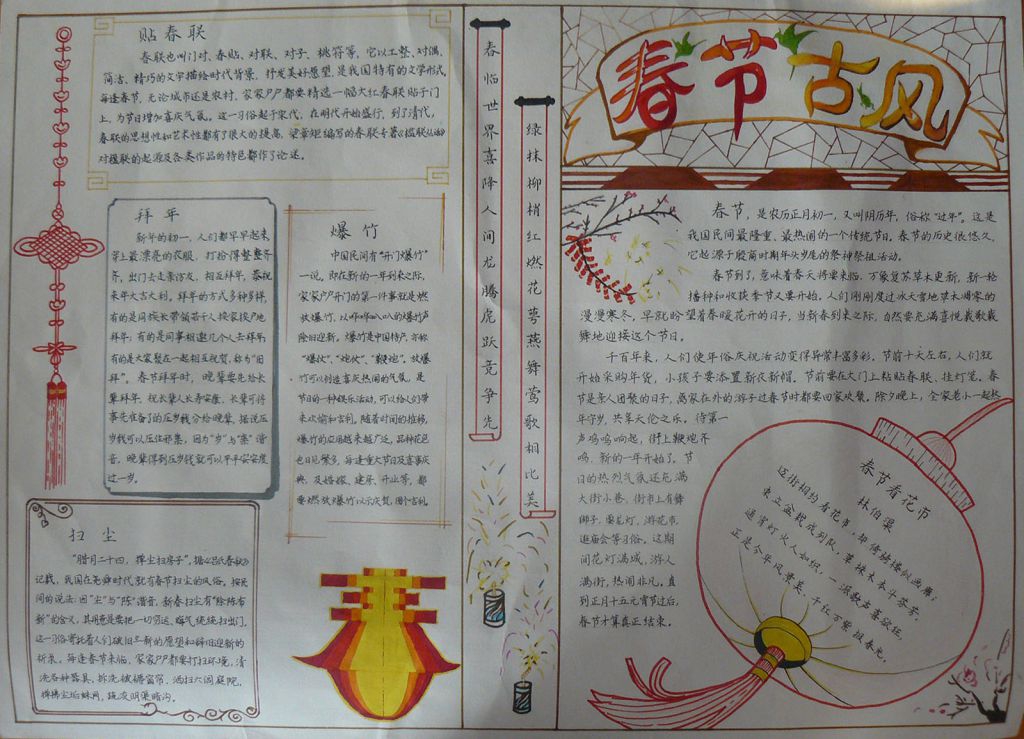 贴春联
春联也叫门对、春贴、对联、对子、桃符等,它以工整、对偶、
简洁、精巧的文字描绘时代背景,抒发美好愿望,是我国特有的文学形式,
每逢春节,无论城市还是农村,家家户户都要精选一幅大红春联贴于门
上,为节日增加喜庆气氛。这一习俗起于宋代,在明代开始盛行,到了清代,
春联的思想性和艺术性都有了很大的提高,梁章矩编写的春联专著《楹联丛话》
对楹联的起源及各类作品的特色都作了论述。
拜年
新年的初一,人们都早早起来,
穿上最漂亮的衣服,打扮得整整齐
齐,出门去走亲访友,相互拜年,恭祝
来年大吉大利。拜年的方式多种多样,
有的是同族长带领若干人挨家挨户地
拜年;有的是同事相邀几个人去拜年;
有的是大家聚在一起相互祝贺,称为“团
拜”。春节拜年时,晚辈要先给长
辈拜年,祝长辈人长寿安康,长辈可将
事先准备好的压岁钱分给晚辈,据说压
岁钱可以压住邪祟,因为“岁”与“祟”谐
音,晚辈得到压岁钱就可以平平安安度
过一岁。
爆竹
中国民间有“开门爆竹”
一说,即在新的一年到来之际,
家家户户开门的第一件事就是燃
放爆竹,以哔哔叭叭的爆竹声
除旧迎新。爆竹是中国特产,亦称
“爆仗”、“炮仗”、“鞭炮”。放爆
竹可以创造喜庆热闹的气氛,是
节日的一种娱乐活动,可以给人们带
来欢愉和吉利。随着时间的推移,
爆竹的应用越来越广泛,品种花色
也日见繁多,每逢重大节日及喜事庆
典,及婚嫁、建房、开业等,都
要燃放爆竹以示庆贺,图个吉利。
扫尘
“腊月二十四,掸尘扫房子”,据《吕氏春秋》
记载,我国在尧舜时代就有春节扫尘的风俗。按民
间的说法:因“尘”与“陈”谐音,新春扫尘有“除陈布
新”的含义,其用意是要把一切穷运、晦气统统扫出门。
这一习俗寄托着人们破旧立新的愿望和辞旧迎新的
祈求。每逢春节来临,家家户户都要打扫环境,清
洗各种器具,拆洗被褥窗帘,洒扫六闾庭院,
掸拂尘垢蛛网,疏浚明渠暗沟。
春临世界喜降人间龙腾虎跃竞争先
绿抹柳梢红燃花萼燕舞莺歌相比美
春节古风
春节,是农历正月初一,又叫阴历年,俗称“过年”。这是
我国民间最隆重、最热闹的一个传统节日。春节的历史很悠久,
它起源于殷商时期年头岁尾的祭神祭祖活动。
春节到了,意味着春天将要来临,万象复苏草木更新,新一轮
播种和收获季节又要开始。人们刚刚度过冰天雪地草木凋零的
漫漫寒冬,早就盼望着春暖花开的日子,当新春到来之际,自然要充满喜悦载歌载
舞地迎接这个节日。
千百年来,人们使年俗庆祝活动变得异常丰富多彩,节前十天左右,人们就
开始采购年货,小孩子要添置新衣新帽。节前要在大门上粘贴春联、挂灯笼。春
节是亲人团聚的日子,离家在外的游子过春节时都要回家欢聚。除夕晚上,全家老小一起熬
年守岁,共享天伦之乐,待第一
声鸡鸣响起,街上鞭炮齐
鸣,新的一年开始了。节
日的热烈气氛还充满
大街小巷,街市上有舞
狮子、耍龙灯、游花市、
逛庙会等习俗。这期
间花灯满城,游人
满街,热闹非凡,直
到正月十五元宵节过后,
春节才算真正结束。
春节看花市
林伯渠
迈街相约看花市,却倚骑楼似画廊;
束立盆栽成列队,草株木本斗芬芳。
通宵灯火人如织,一派歌声喜欲狂。
正是今年风景美,千红万紫报春光。